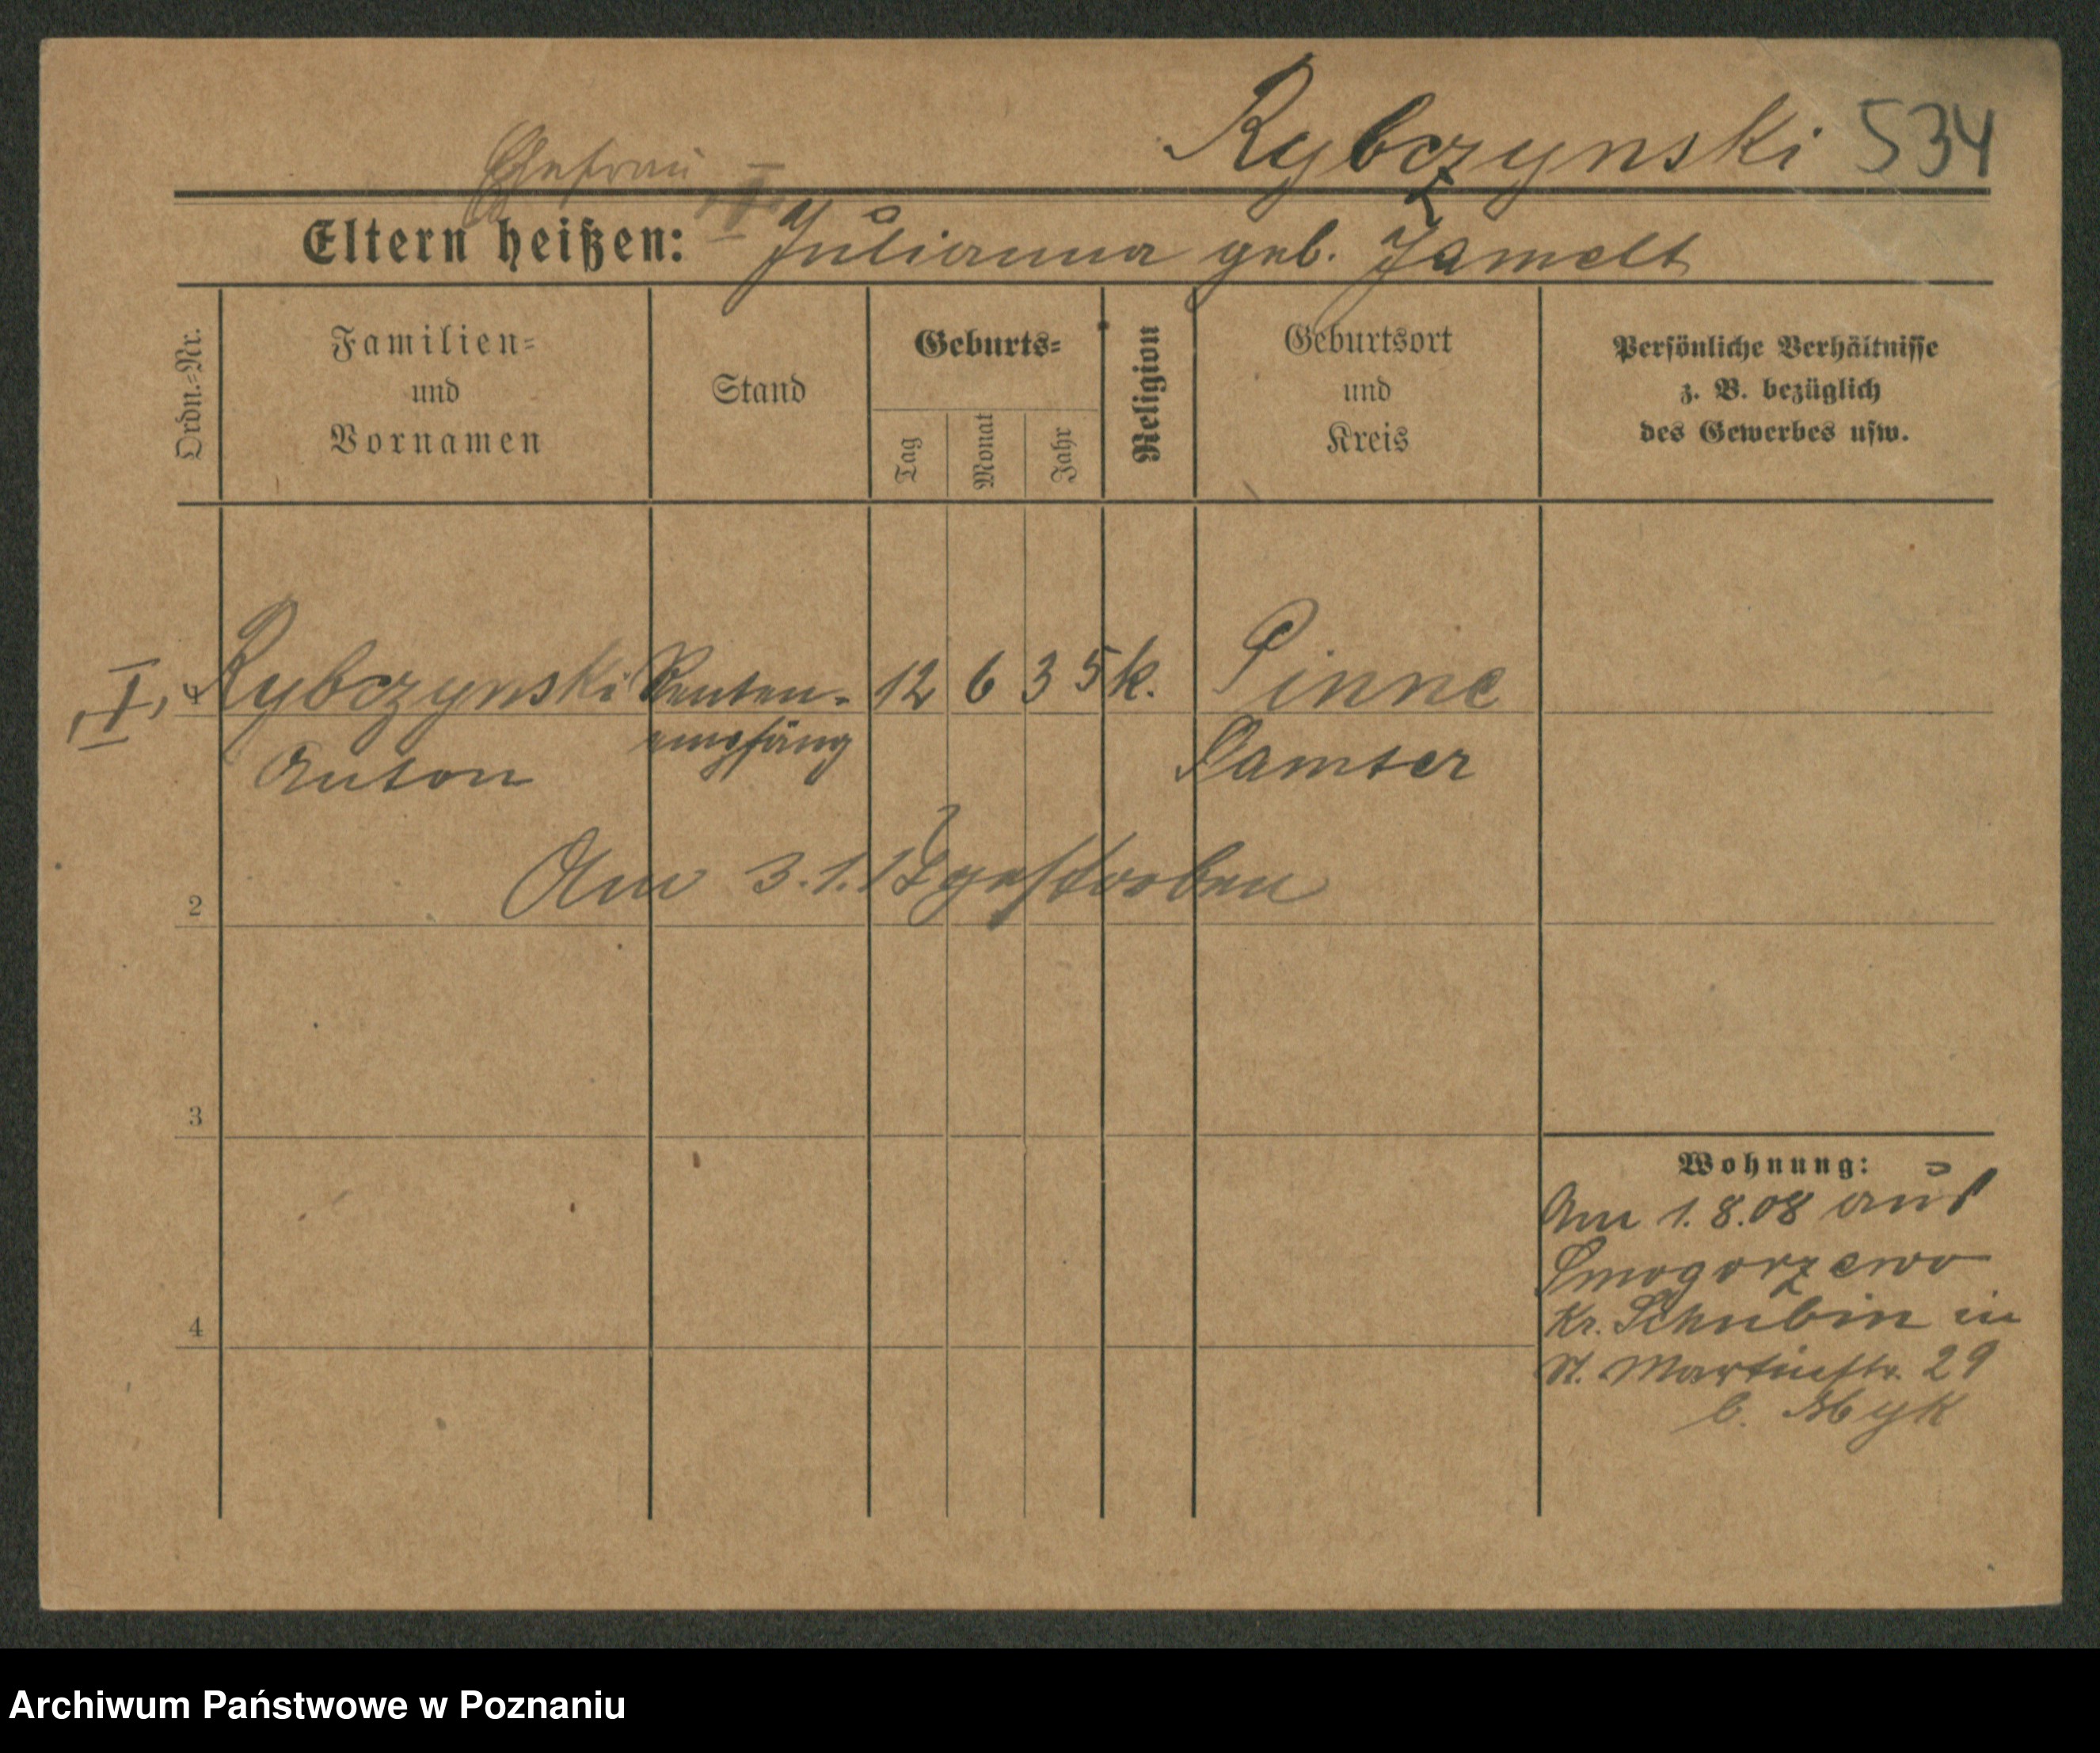 Rybczynski 534
Ehefrau I
Eltern heißen: Julianna geb. Jamelt
Ordn.=Nr.
Familien=
und
Vornamen
Stand
Geburts=
Tag
Monat
Jahr
Religion
Geburtsort
und
Kreis
Persönliche Verhältnisse
z. B. bezüglich
des Gewerbes usw.
I, Rybczynski Renten- 12 6 35 k. Pinne
Anton empfäng Samter
Am 3.1.12 gestorben
2
3
4
Wohnung:
Am 1.8.08 aus
Smogorzewo
Kr. Schubin in
St. Martinstr. 29
b.
Archiwum Państwowe w Poznaniu